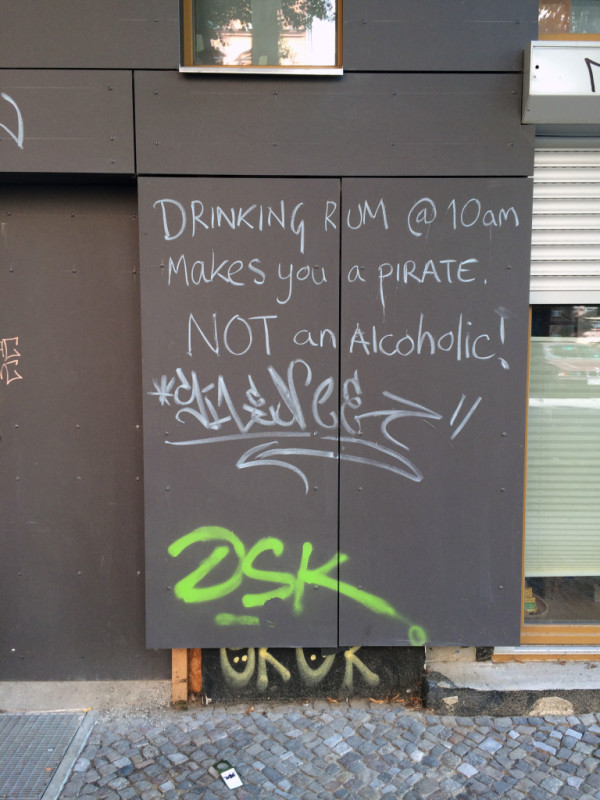 DRINKING RUM @ 10am
Makes you a PIRATE.
NOT an Alcoholic!
DSK